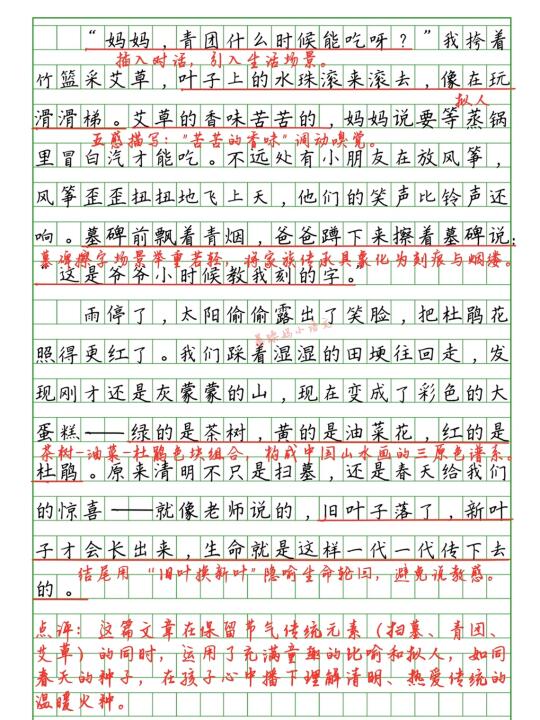 “妈妈，青团什么时候能吃呀？”我挎着
插入对话，引入生活场景。
竹篮采艾草，叶子上的水珠滚来滚去，像在玩
拟人
滑滑梯。艾草的香味苦苦的，妈妈说要等蒸锅
五感描写：“苦苦的香味”调动嗅觉。
里冒白汽才能吃。不远处有小朋友在放风筝，
风筝歪歪扭扭地飞上天，他们的笑声比铃声还
响。墓碑前飘着青烟，爸爸蹲下来擦着墓碑说：
墓碑擦字场景举重若轻，将家族传承具象化为刻痕与烟缕。
“这是爷爷小时候教我刻的字。”
雨停了，太阳偷偷露出了笑脸，把杜鹃花
照得更红了。我们踩着湿湿的田埂往回走，发
现刚才还是灰蒙蒙的山，现在变成了彩色的大
蛋糕——绿的是茶树，黄的是油菜花，红的是
茶树-油菜-杜鹃色块组合，构成中国山水画的三原色谱系。
杜鹃。原来清明不只是扫墓，还是春天给我们
的惊喜——就像老师说的，旧叶子落了，新叶
子才会长出来，生命就是这样一代一代传下去
结尾用“旧叶换新叶”隐喻生命轮回，避免说教感。
的。
点评：这篇文章在保留节气传统元素（扫墓、青团、
艾草）的同时，运用了充满童趣的比喻和拟人，如同
春天的种子，在孩子心中播下理解清明、热爱传统的
温暖火种。